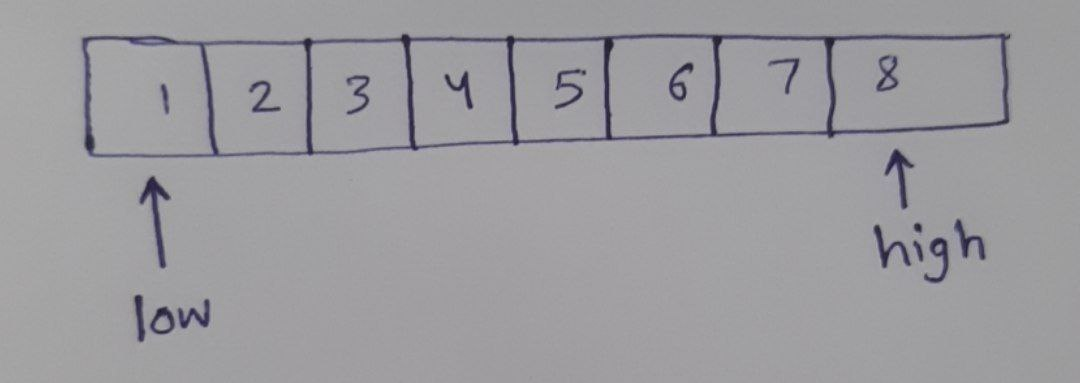 1 2 3 4 5 6 7 8
low
high